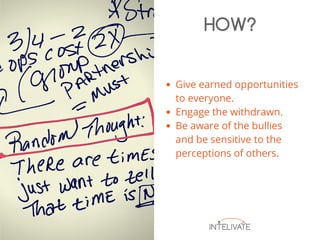 *Str
3/4 - 2
ops cost 2X
Group
Partnershi
= Must
Random Thought:
There are times
just want to tell
That time is N
HOW?
Give earned opportunities
to everyone.
Engage the withdrawn.
Be aware of the bullies
and be sensitive to the
perceptions of others.
INTELIVATE